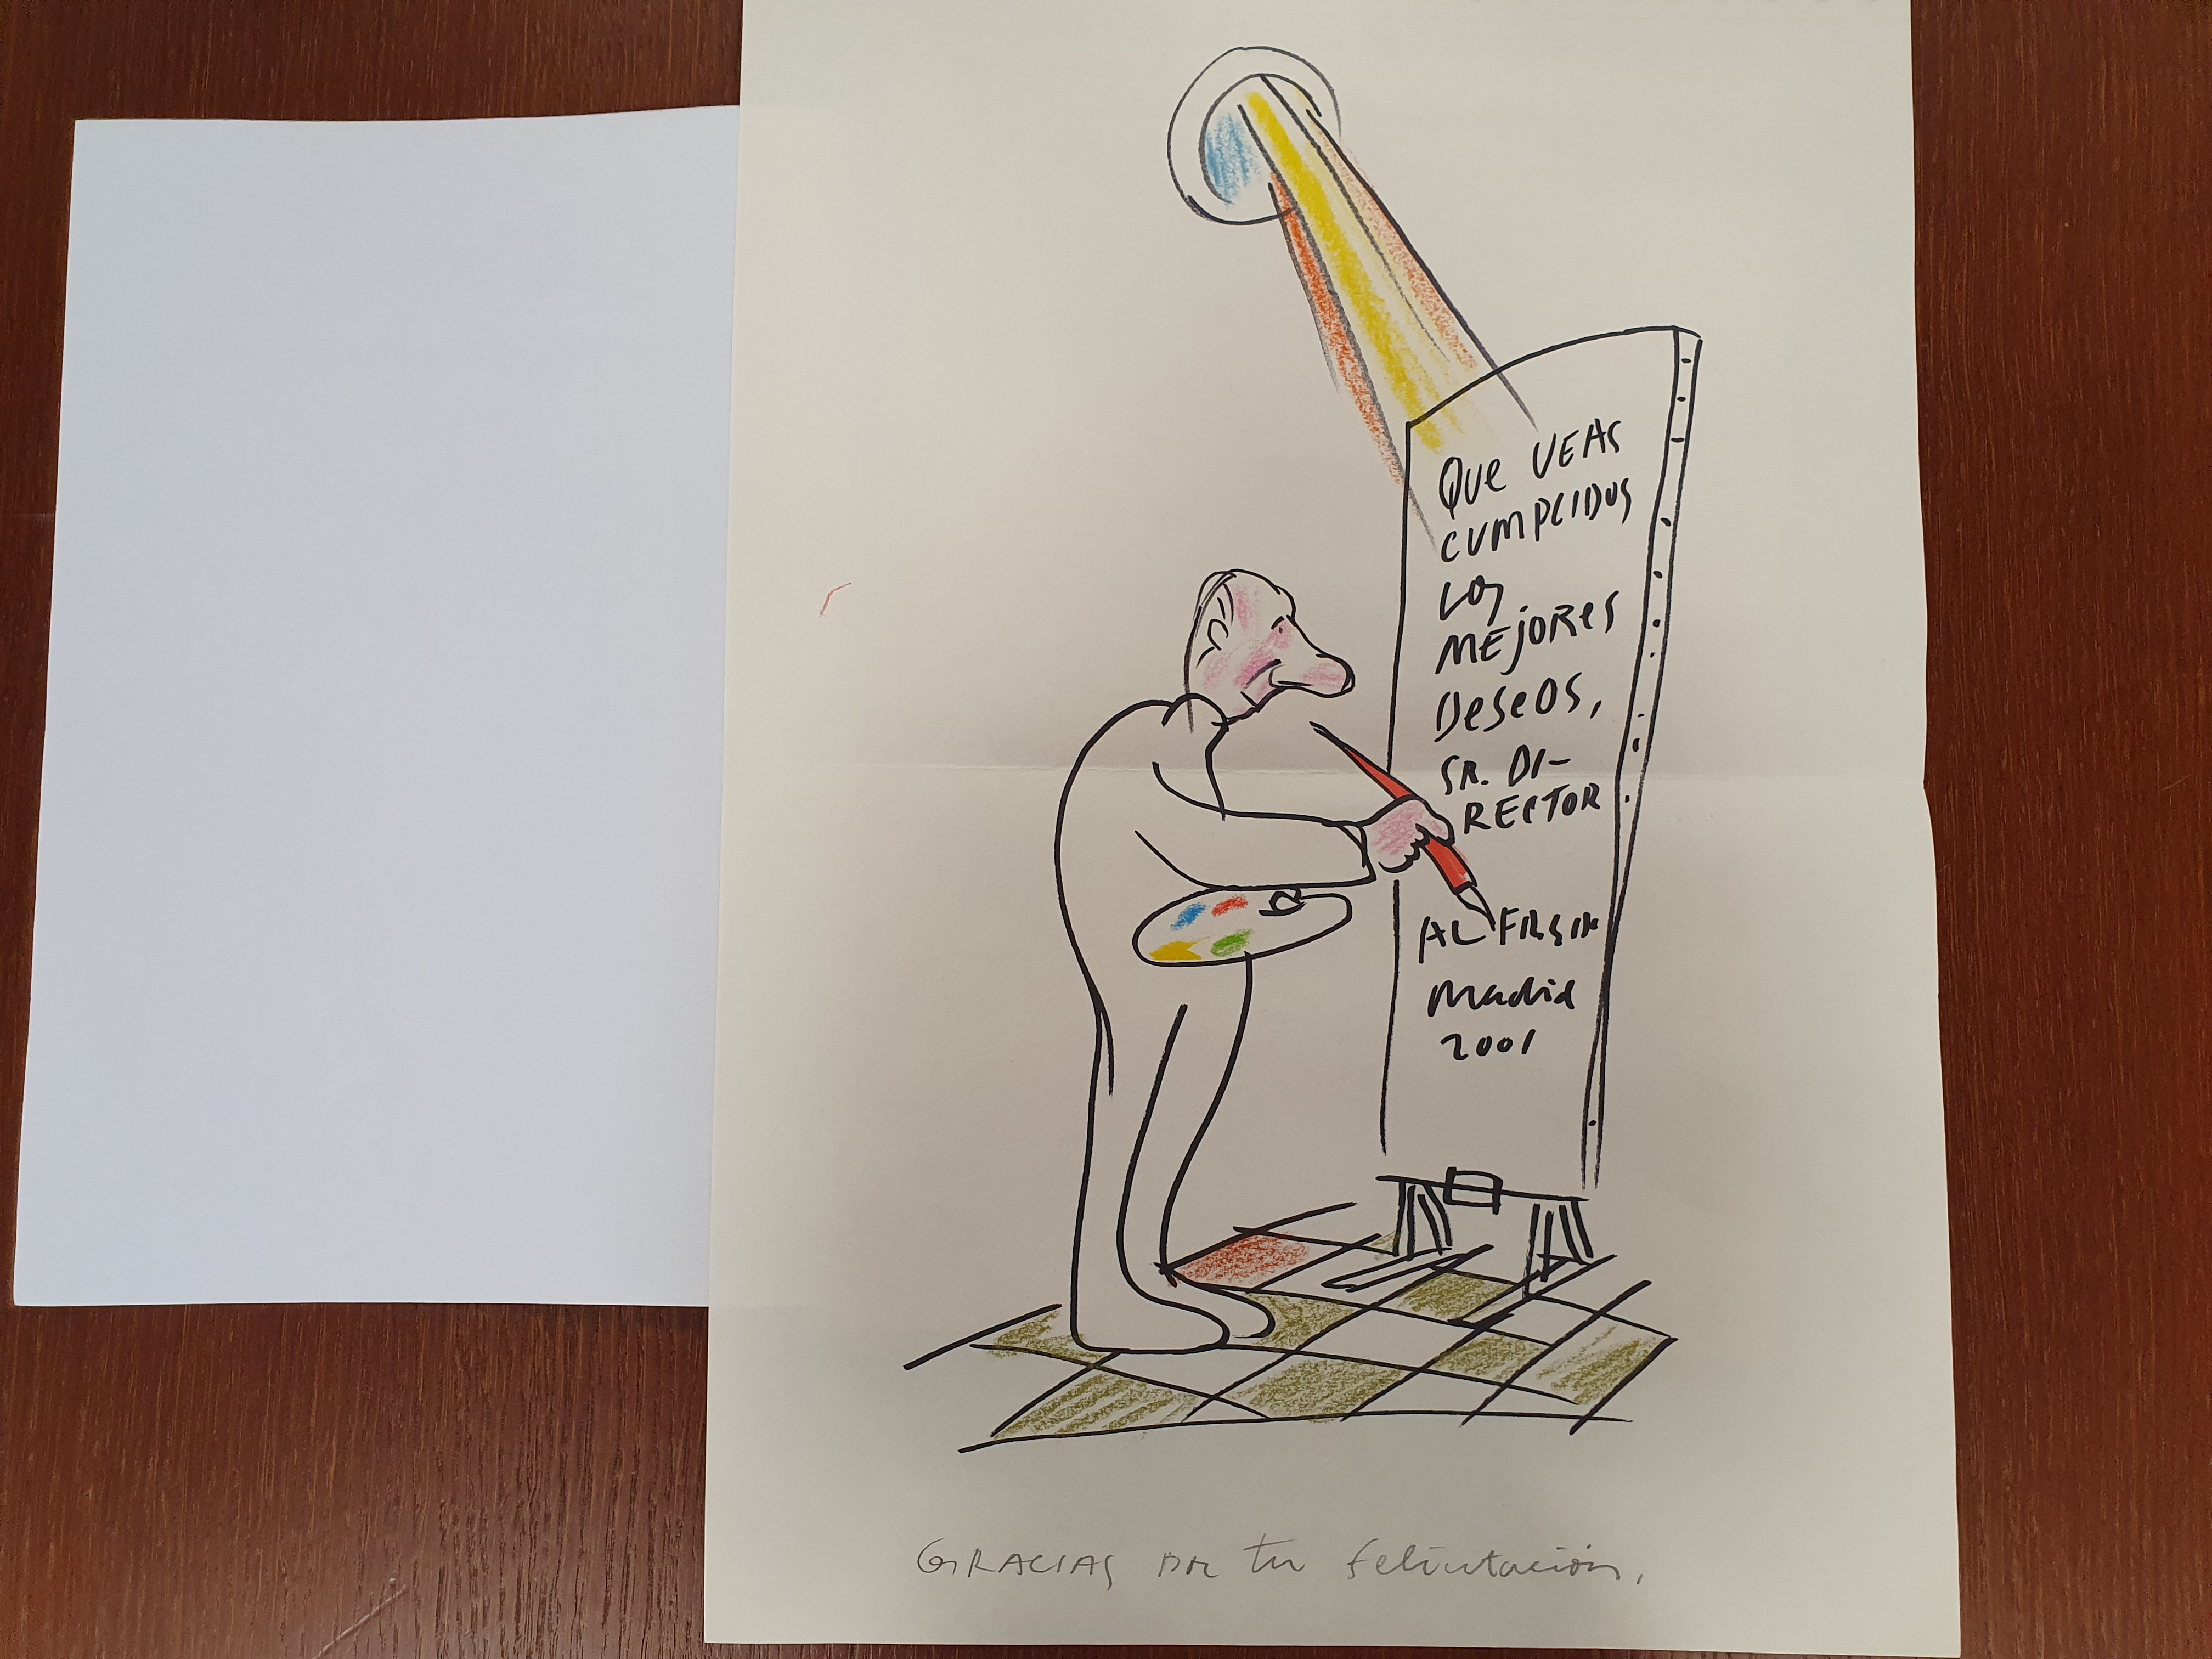 QUE VEAS
CUMPLIDOS
LOS
MEJORES
DESEOS,
SR. DI-
RECTOR
Madrid
2001
GRACIAS POR tu felicitación,